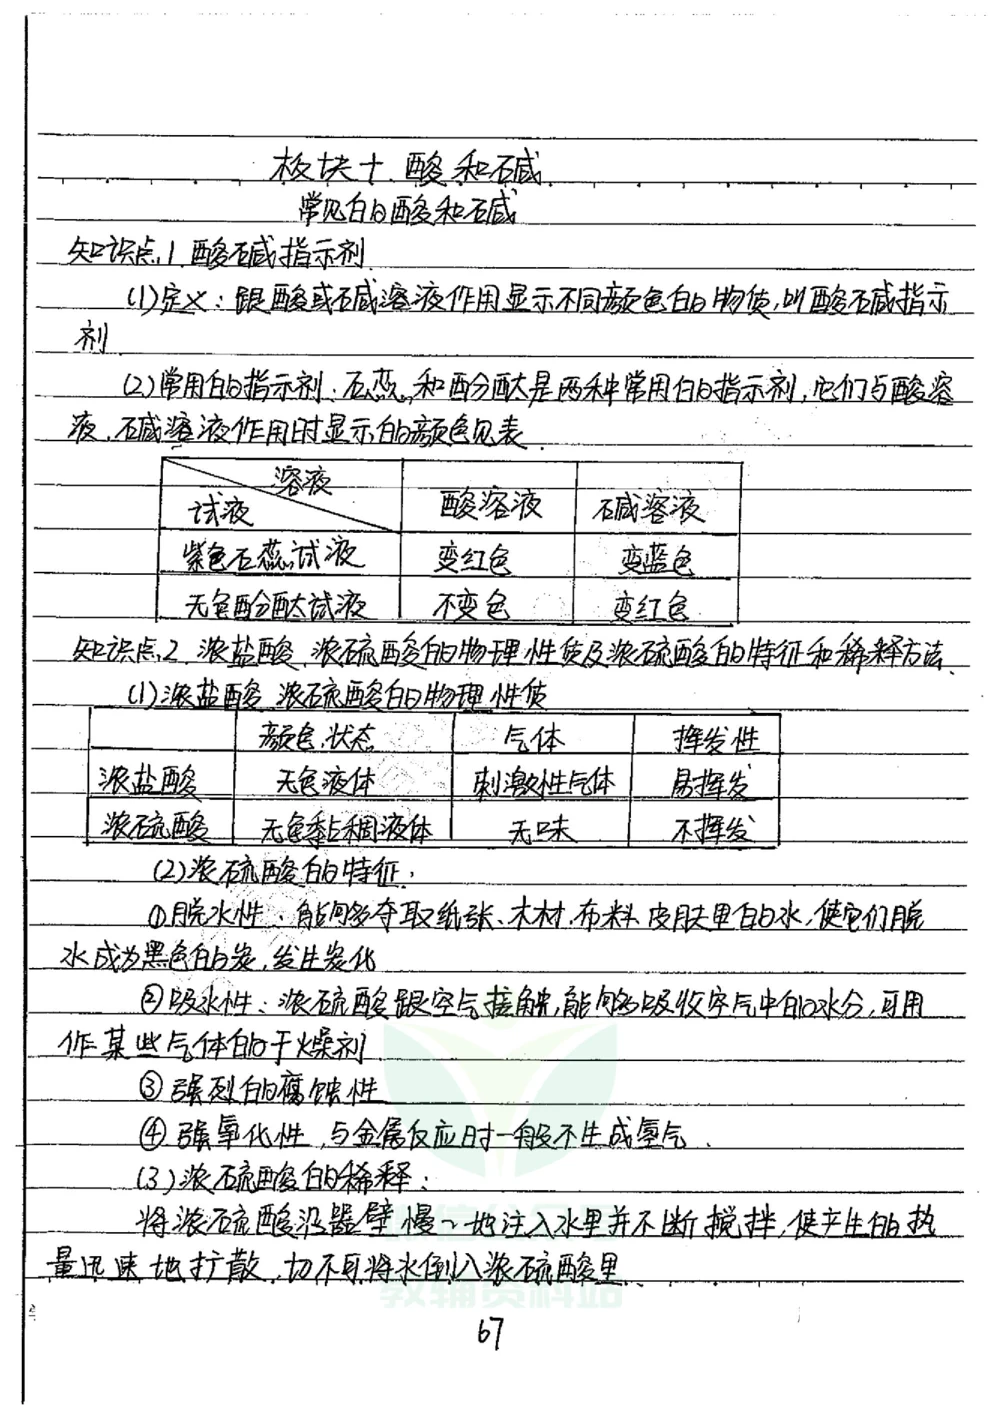 板块十.酸和碱
常见的酸和碱
知识点1.酸碱指示剂
(1)定义:跟酸或碱溶液作用显示不同颜色的物质,叫酸碱指示
剂
(2)常用的指示剂:石蕊和酚酞是两种常用的指示剂,它们与酸溶
液、碱溶液作用时显示的颜色见表
溶液
试液 酸溶液 碱溶液
紫色石蕊试液 变红色 变蓝色
无色酚酞试液 不变色 变红色
知识点2.浓盐酸、浓硫酸的物理性质及浓硫酸的特征和稀释方法.
(1)浓盐酸、浓硫酸的物理性质
颜色、状态 气体 挥发性
浓盐酸 无色液体 刺激性气体 易挥发
浓硫酸 无色黏稠液体 无味 不挥发
(2)浓硫酸的特征:
①脱水性:能够夺取纸张、木材、布料、皮肤里的水,使它们脱
水成为黑色的炭,发生炭化
②吸水性:浓硫酸跟空气接触,能够吸收空气中的水分,可用
作某些气体的干燥剂
③强烈的腐蚀性
④强氧化性,与金属反应时一般不生成氢气.
(3)浓硫酸的稀释:
将浓硫酸沿器壁慢~地注入水里并不断搅拌,使产生的热
量迅速地扩散,切不可将水倒入浓硫酸里.
教辅资料站
67